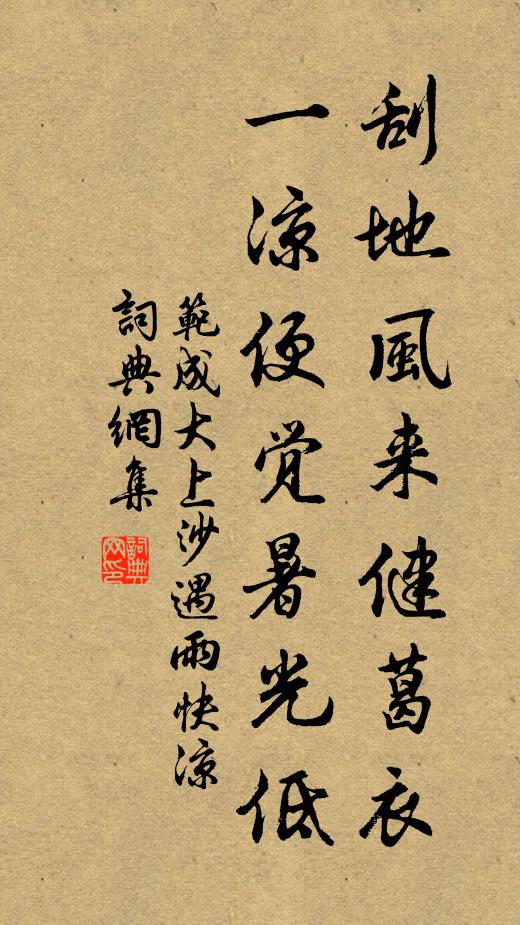 刮地風来健葛衣
一凉便觉暑光低
範成大上沙遇雨快凉
詞典網集
詞典网印